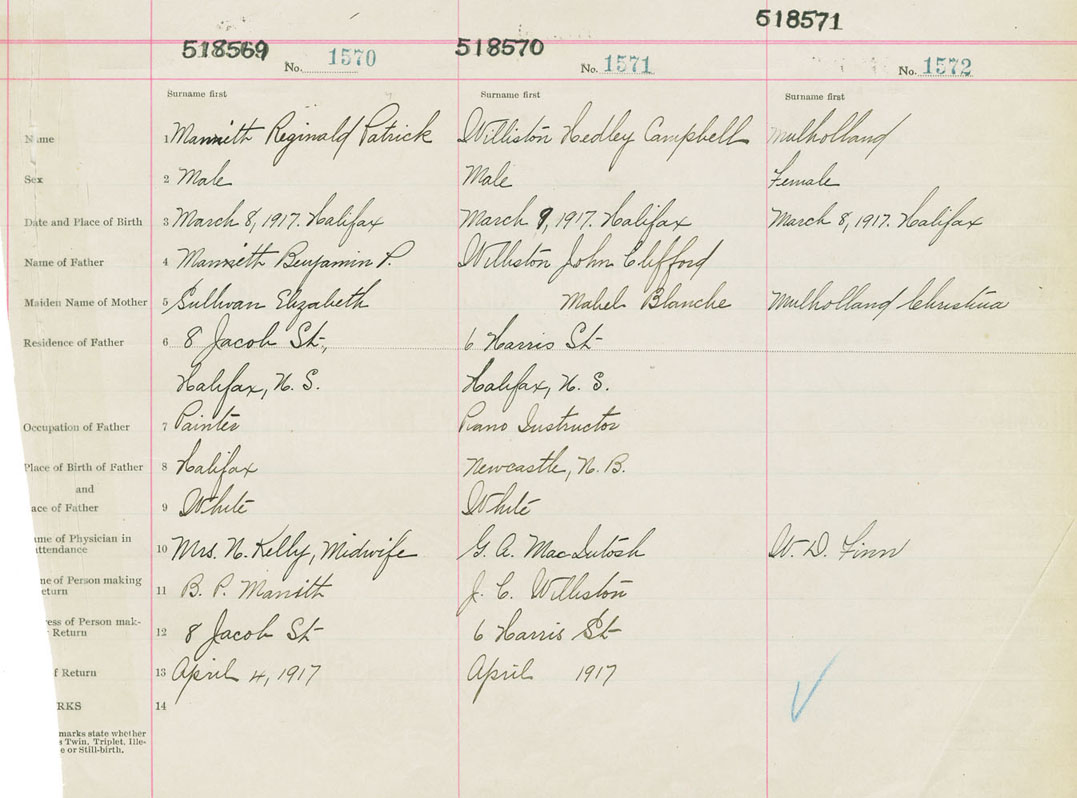 518569 518570 518571
No. 1570 No. 1571 No. 1572
Surname first Surname first Surname first
Name 1 Reginald Patrick Williston Hedley Campbell Mulholland
Sex 2 Male Male Female
Date and Place of Birth 3 March 8, 1917. Halifax March 9, 1917. Halifax March 8, 1917. Halifax
Name of Father 4 Benjamin P. Williston John Clifford
Maiden Name of Mother 5 Sullivan Elizabeth Mabel Blanche Mulholland Christina
Residence of Father 6 8 Jacob St., 6 Harris St
Halifax, N. S. Halifax, N. S.
Occupation of Father 7 Painter Piano Instructor
Place of Birth of Father 8 Halifax Newcastle, N. B.
and
ace of Father 9 White White
me of Physician in
ttendance 10 Mrs. N. Kelly, Midwife G. A. MacIntosh W. D. Finn
ne of Person making
eturn 11 B. P. J. C. Williston
ress of Person mak-
Return 12 8 Jacob St 6 Harris St
f Return 13 April 4, 1917 April 1917
RKS 14
marks state whether
s Twin, Triplet, Ille-
e or Still-birth.